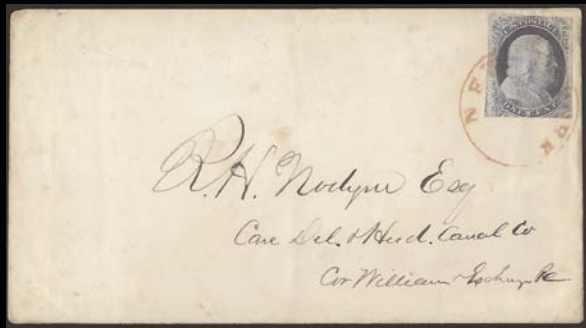 U.S. POSTAGE
ONE CENT
NEW YORK
R. H. Nodyne Esq
Care Del. & Hud. Canal Co
Cor William & Exchange Pl